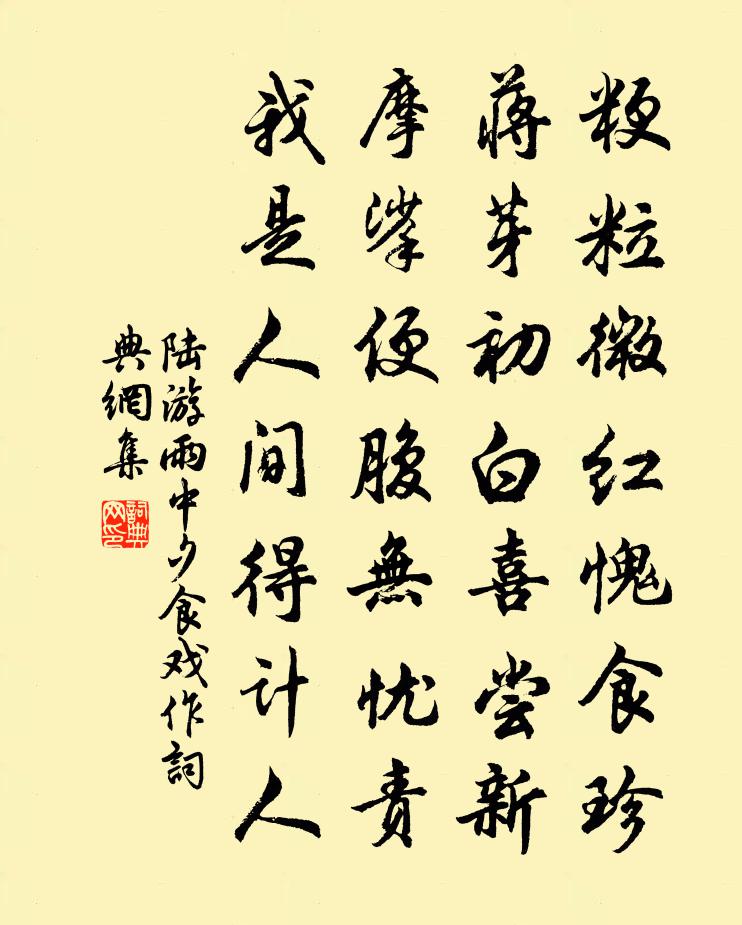 粳粒微红愧食珍
蒋芽初白喜尝新
摩挲便腹無忧责
我是人间得计人
陆游雨中夕食戏作詞
典網集
詞典網印